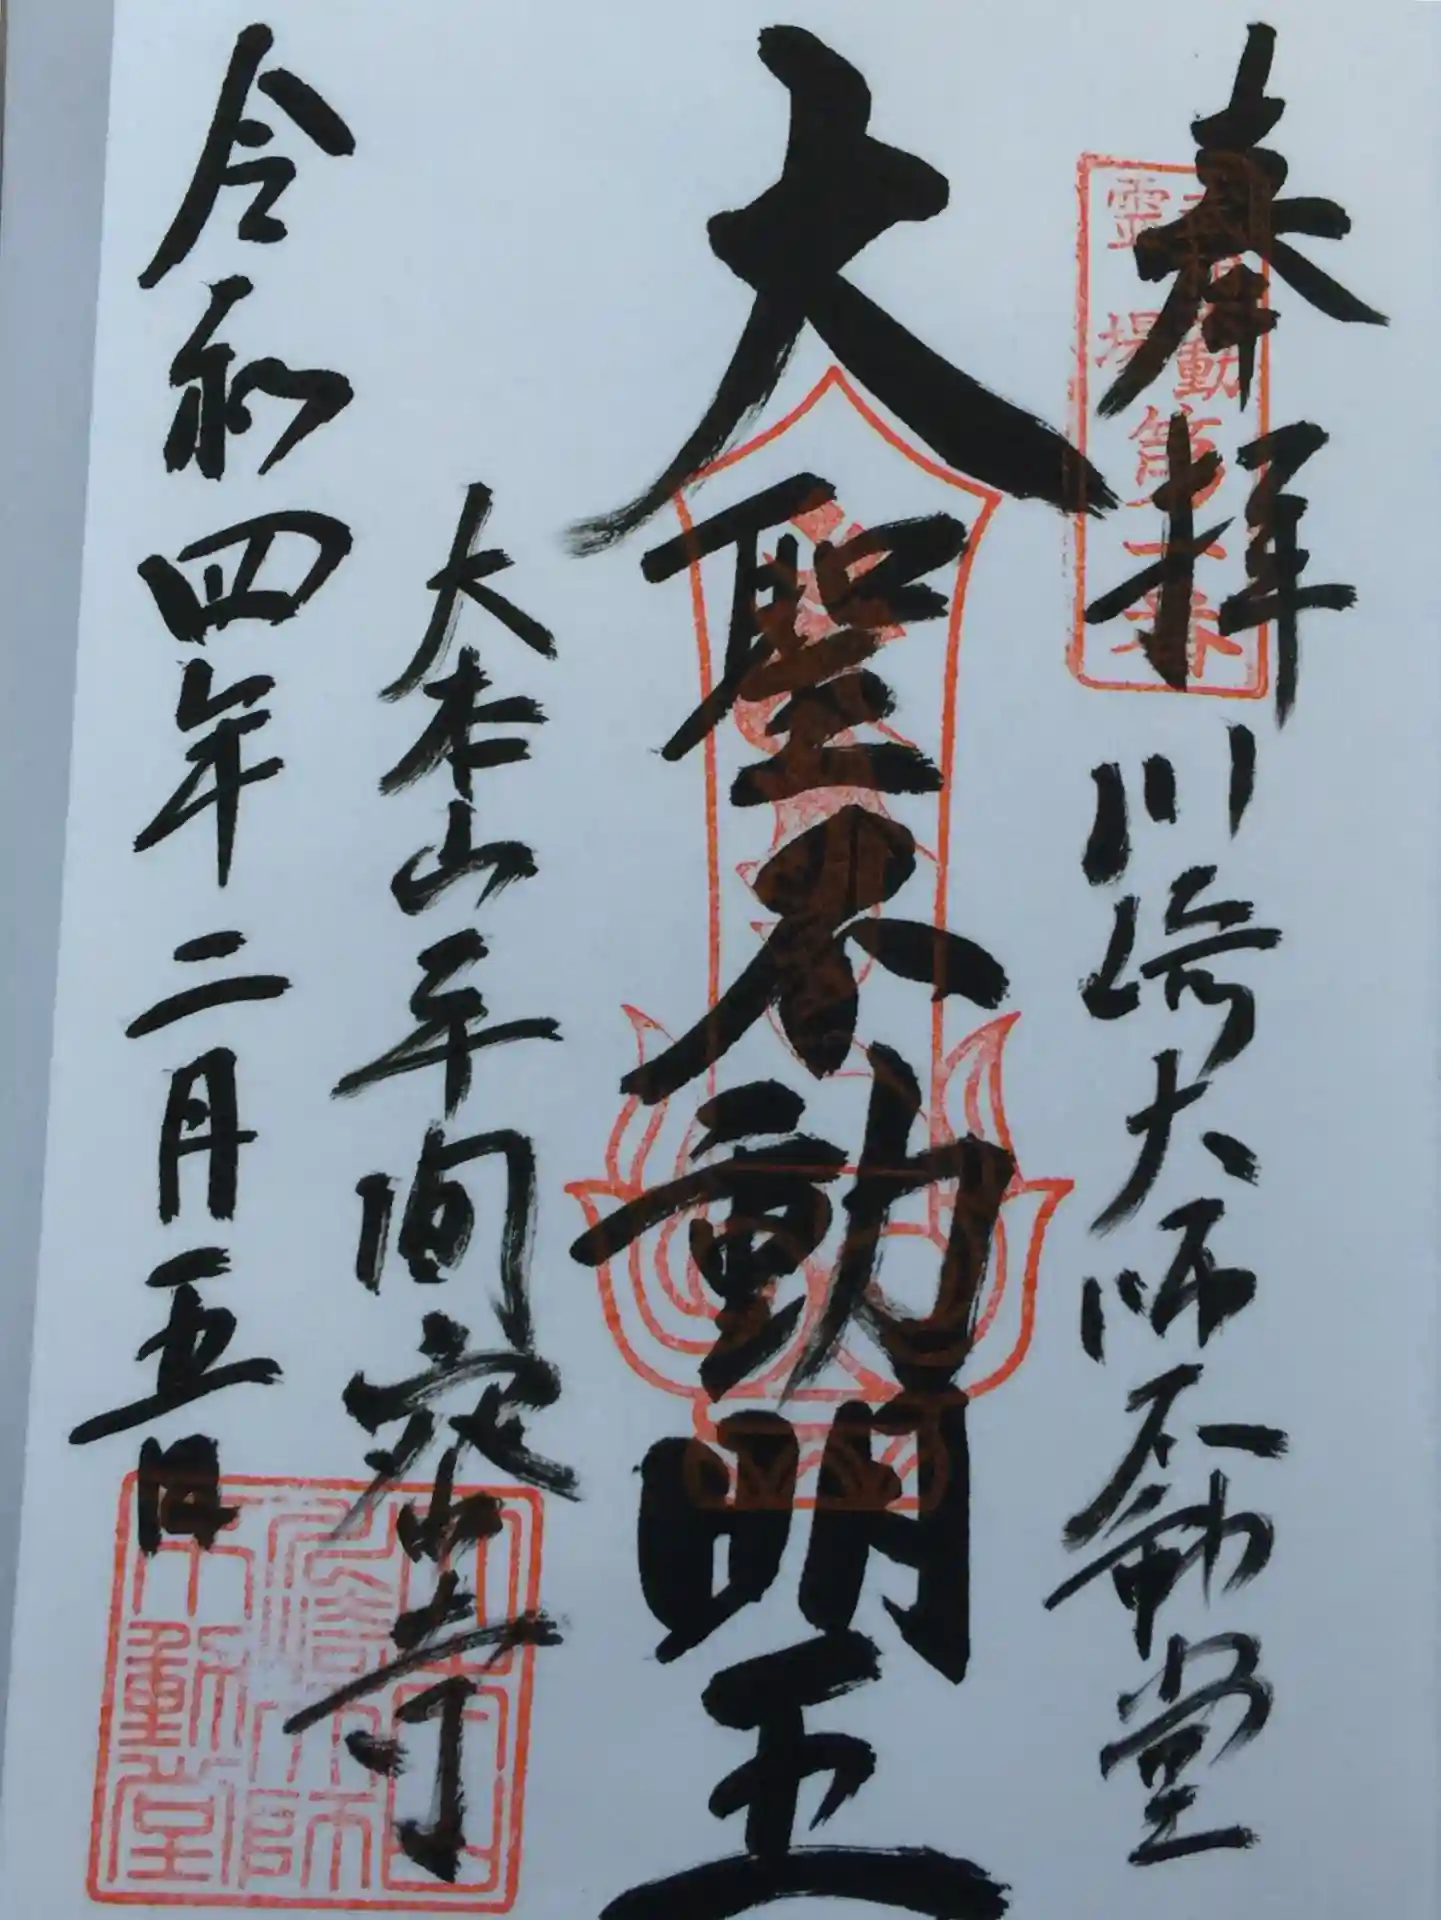 奉拝
川崎大師不動堂
大聖不動明王
大本山平間寺
令和四年二月五日
霊場
第一番
川崎大師
不動堂